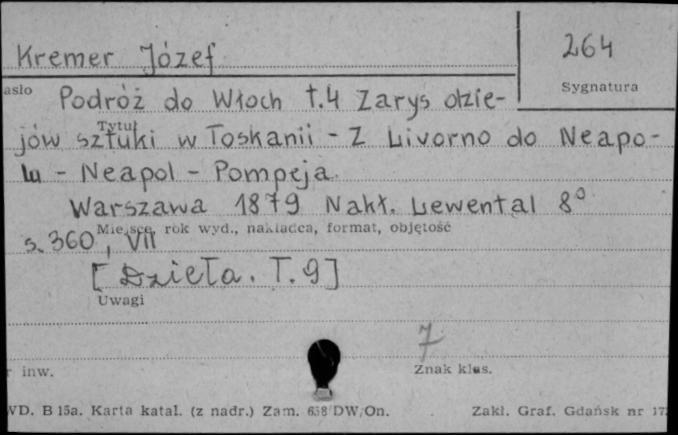 Kremer Józef
264
Sygnatura
asło Podróż do Włoch t.4 Zarys dzie-
Tytuł
jów sztuki w Toskanii - Z Livorno do Neapo-
lu - Neapol - Pompeja.
Warszawa 1879 Nakł. Lewental 8°
Miejsce, rok wyd., nakładca, format, objętość
s. 360, VII
[Dzieła. T.9]
Uwagi
7
r inw.
Znak klas.
WD. B 15a. Karta katal. (z nadr.) Zam. 658 DW/On. Zakł. Graf. Gdańsk nr 17